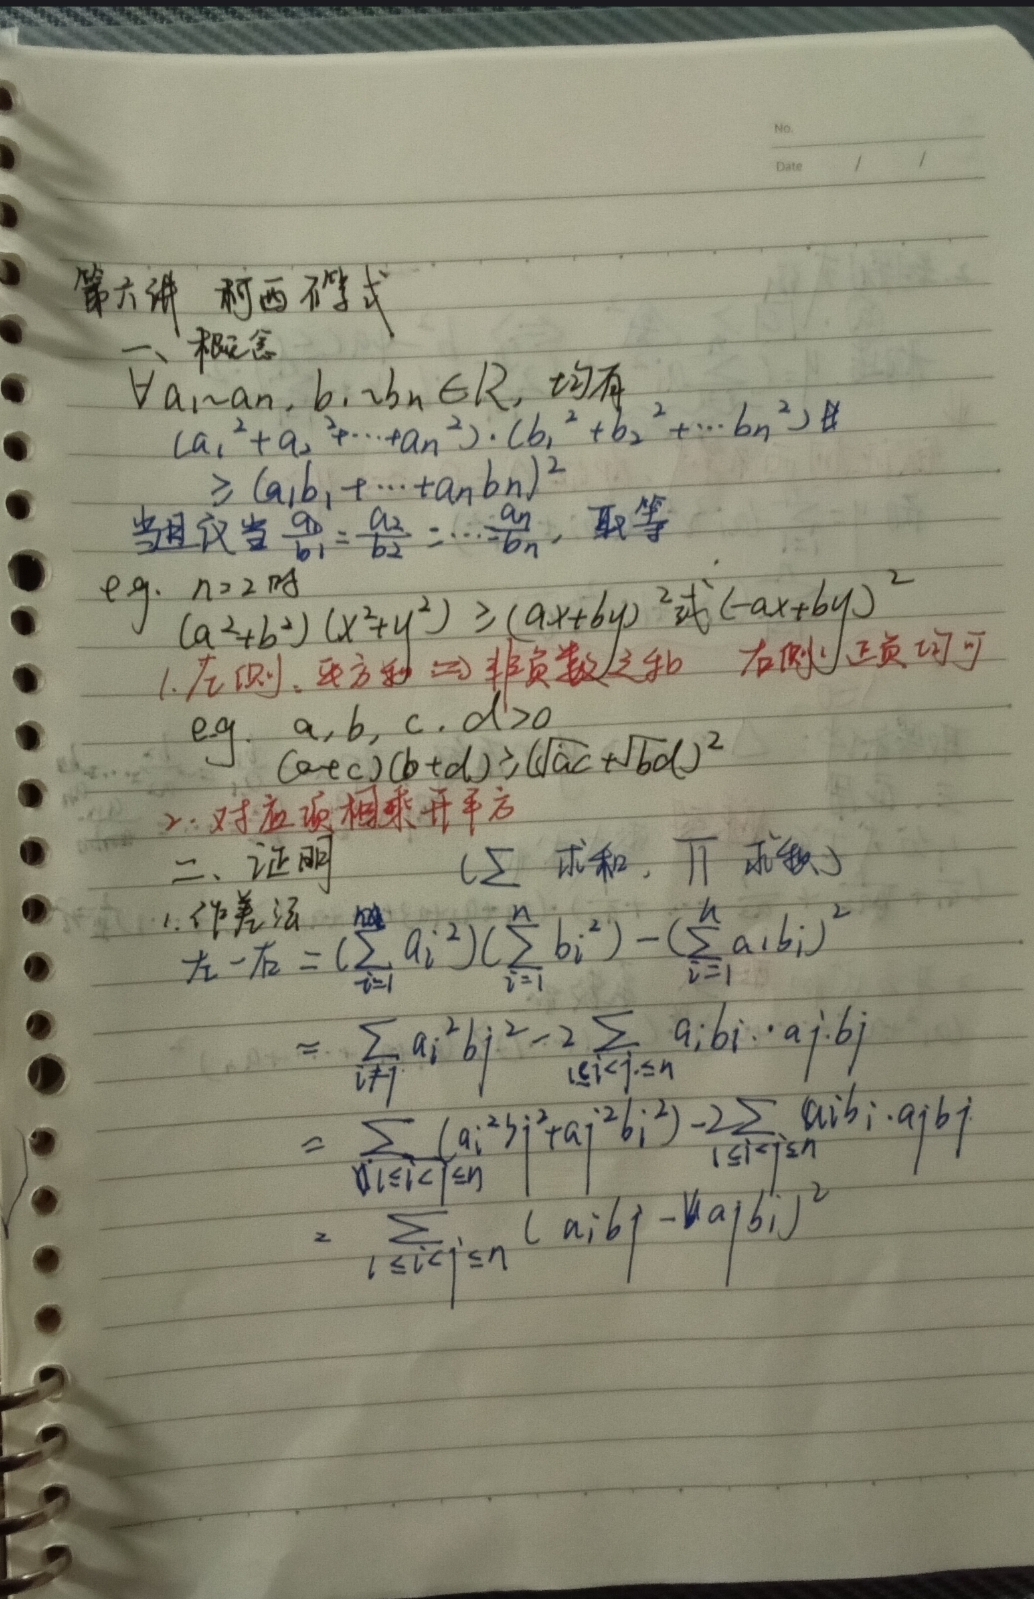 No.
Date / /
第六讲 柯西不等式
一、概念
∀a₁~aₙ, b₁~bₙ∈R, 均有
(a₁²+a₂²+…+aₙ²)·(b₁²+b₂²+…bₙ²)
≥(a₁b₁+…+aₙbₙ)²
当且仅当 a₁/b₁=a₂/b₂=…=aₙ/bₙ, 取等
e.g. n=2时
(a²+b²)(x²+y²)≥(ax+by)²或(-ax+by)²
1.左侧:平方和⇒非负数之和 右侧:正负均可
e.g. a, b, c, d>0
(a+c)(b+d)≥(√ac+√bd)²
2.对应项相乘开平方
二、证明 (∑ 求和, ∏ 求积)
1.作差法
左-右=(∑ᵢ₌₁ⁿ aᵢ²)(∑ᵢ₌₁ⁿ bᵢ²)-(∑ᵢ₌₁ⁿ aᵢbᵢ)²
=∑_{i≠j} aᵢ²bⱼ²-2∑_{1≤i<j≤n} aᵢbᵢ·aⱼbⱼ
=∑_{1≤i<j≤n} (aᵢ²bⱼ²+aⱼ²bᵢ²)-2∑_{1≤i<j≤n} aᵢbᵢ·aⱼbⱼ
=∑_{1≤i<j≤n} (aᵢbⱼ-aⱼbᵢ)²